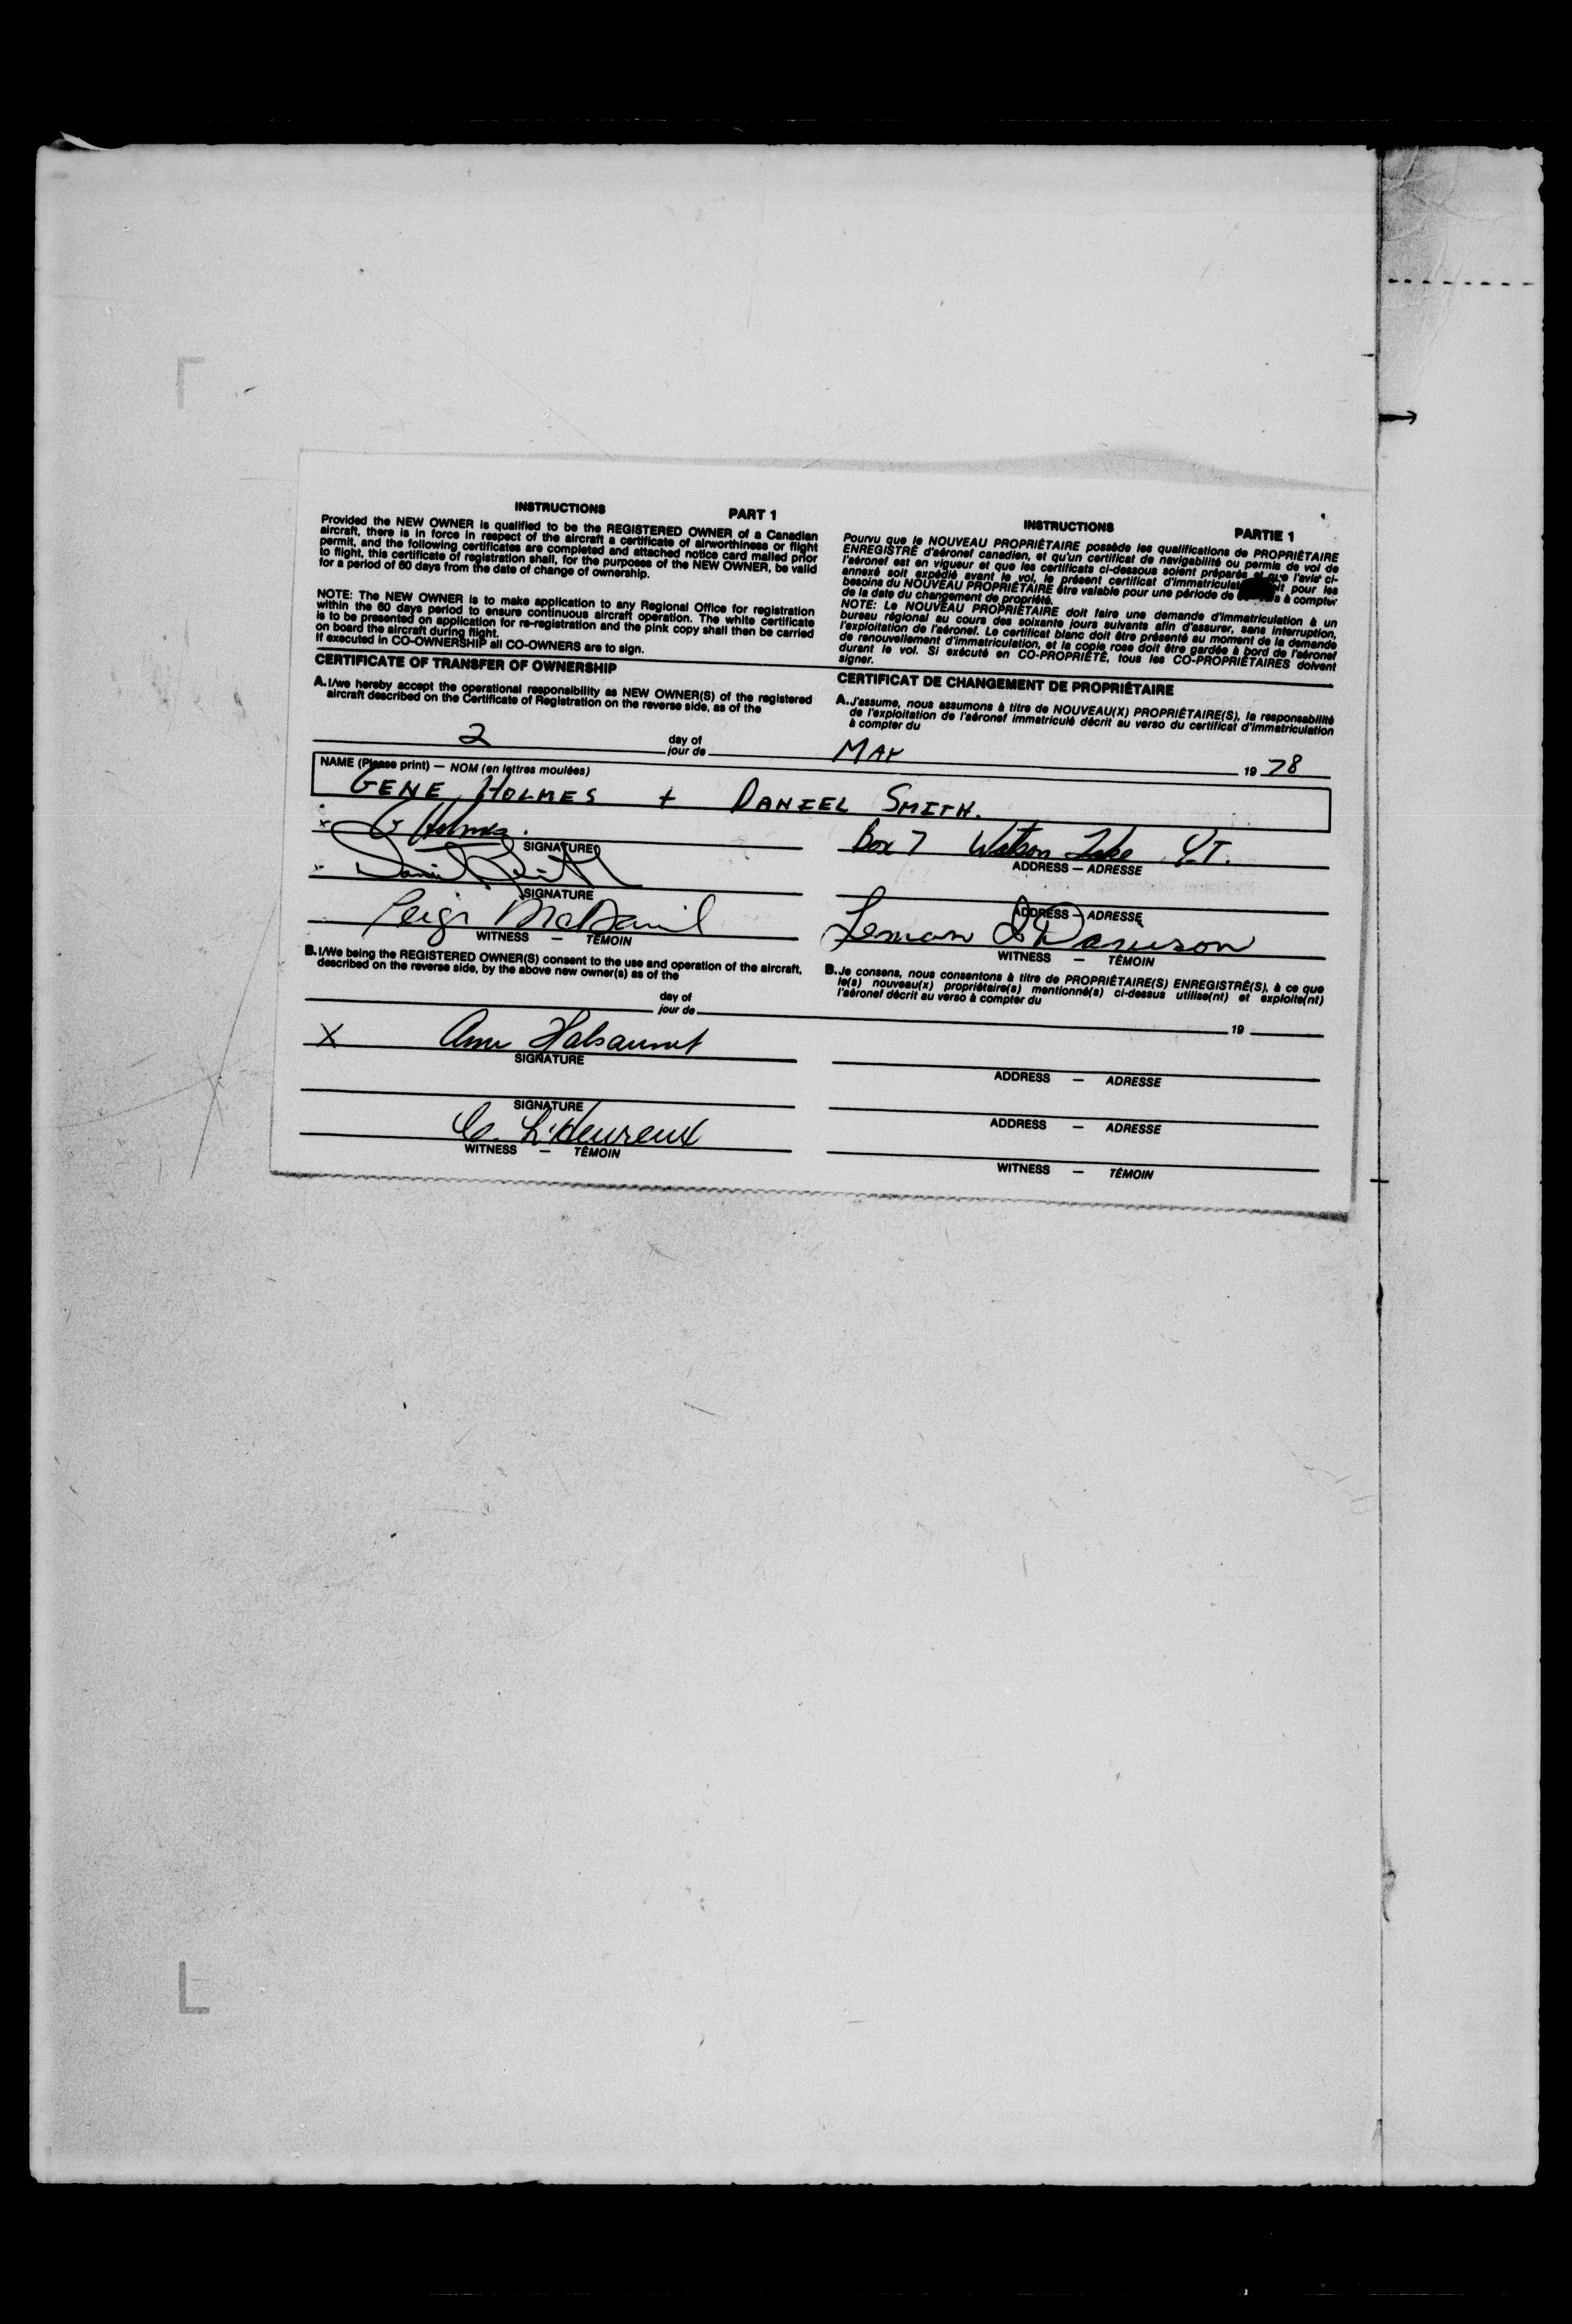 INSTRUCTIONS PART 1
Provided the NEW OWNER is qualified to be the REGISTERED OWNER of a Canadian
aircraft, there is in force in respect of the aircraft a certificate of airworthiness or flight
permit, and the following certificates are completed and attached notice card mailed prior
to flight, this certificate of registration shall, for the purposes of the NEW OWNER, be valid
for a period of 60 days from the date of change of ownership.
NOTE: The NEW OWNER is to make application to any Regional Office for registration
within the 60 days period to ensure continuous aircraft operation. The white certificate
is to be presented on application for re-registration and the pink copy shall then be carried
on board the aircraft during flight.
If executed in CO-OWNERSHIP all CO-OWNERS are to sign.
CERTIFICATE OF TRANSFER OF OWNERSHIP
A. I/we hereby accept the operational responsibility as NEW OWNER(S) of the registered
aircraft described on the Certificate of Registration on the reverse side, as of the
INSTRUCTIONS PARTIE 1
Pourvu que le NOUVEAU PROPRIÉTAIRE possède les qualifications de PROPRIÉTAIRE
ENREGISTRÉ d'aéronef canadien, et qu'un certificat de navigabilité ou permis de vol de
l'aéronef est en vigueur et que les certificats ci-dessous soient préparés et que l'avis ci-
annexé soit expédié avant le vol, le présent certificat d'immatriculat it pour les
besoins du NOUVEAU PROPRIÉTAIRE être valable pour une période de s à compter
de la date du changement de propriété.
NOTE: Le NOUVEAU PROPRIÉTAIRE doit faire une demande d'immatriculation à un
bureau régional au cours des soixante jours suivants afin d'assurer, sans interruption,
l'exploitation de l'aéronef. Le certificat blanc doit être présenté au moment de la demande
de renouvellement d'immatriculation, et la copie rose doit être gardée à bord de l'aéronef
durant le vol. Si exécuté en CO-PROPRIÉTÉ, tous les CO-PROPRIÉTAIRES doivent
signer.
CERTIFICAT DE CHANGEMENT DE PROPRIÉTAIRE
A. J'assume, nous assumons à titre de NOUVEAU(X) PROPRIÉTAIRE(S), la responsabilité
de l'exploitation de l'aéronef immatriculé décrit au verso du certificat d'immatriculation
à compter du
2 day of
jour de MAY 19 78
NAME (Please print) — NOM (en lettres moulées)
GENE HOLMES + DANIEL SMITH.
x G Holmes. Box 7 Watson Lake Y.T.
SIGNATURE ADDRESS — ADRESSE
Daniel Smith
SIGNATURE ADDRESS — ADRESSE
McDaniel Leman
WITNESS — TÉMOIN WITNESS — TÉMOIN
B. I/We being the REGISTERED OWNER(S) consent to the use and operation of the aircraft,
described on the reverse side, by the above new owner(s) as of the
B. Je consens, nous consentons à titre de PROPRIÉTAIRE(S) ENREGISTRÉ(S), à ce que
le(s) nouveau(x) propriétaire(s) mentionné(s) ci-dessus utilise(nt) et exploite(nt)
l'aéronef décrit au verso à compter du
day of
jour de 19
X
SIGNATURE ADDRESS — ADRESSE
SIGNATURE ADDRESS — ADRESSE
C. L'Heureux
WITNESS — TÉMOIN WITNESS — TÉMOIN